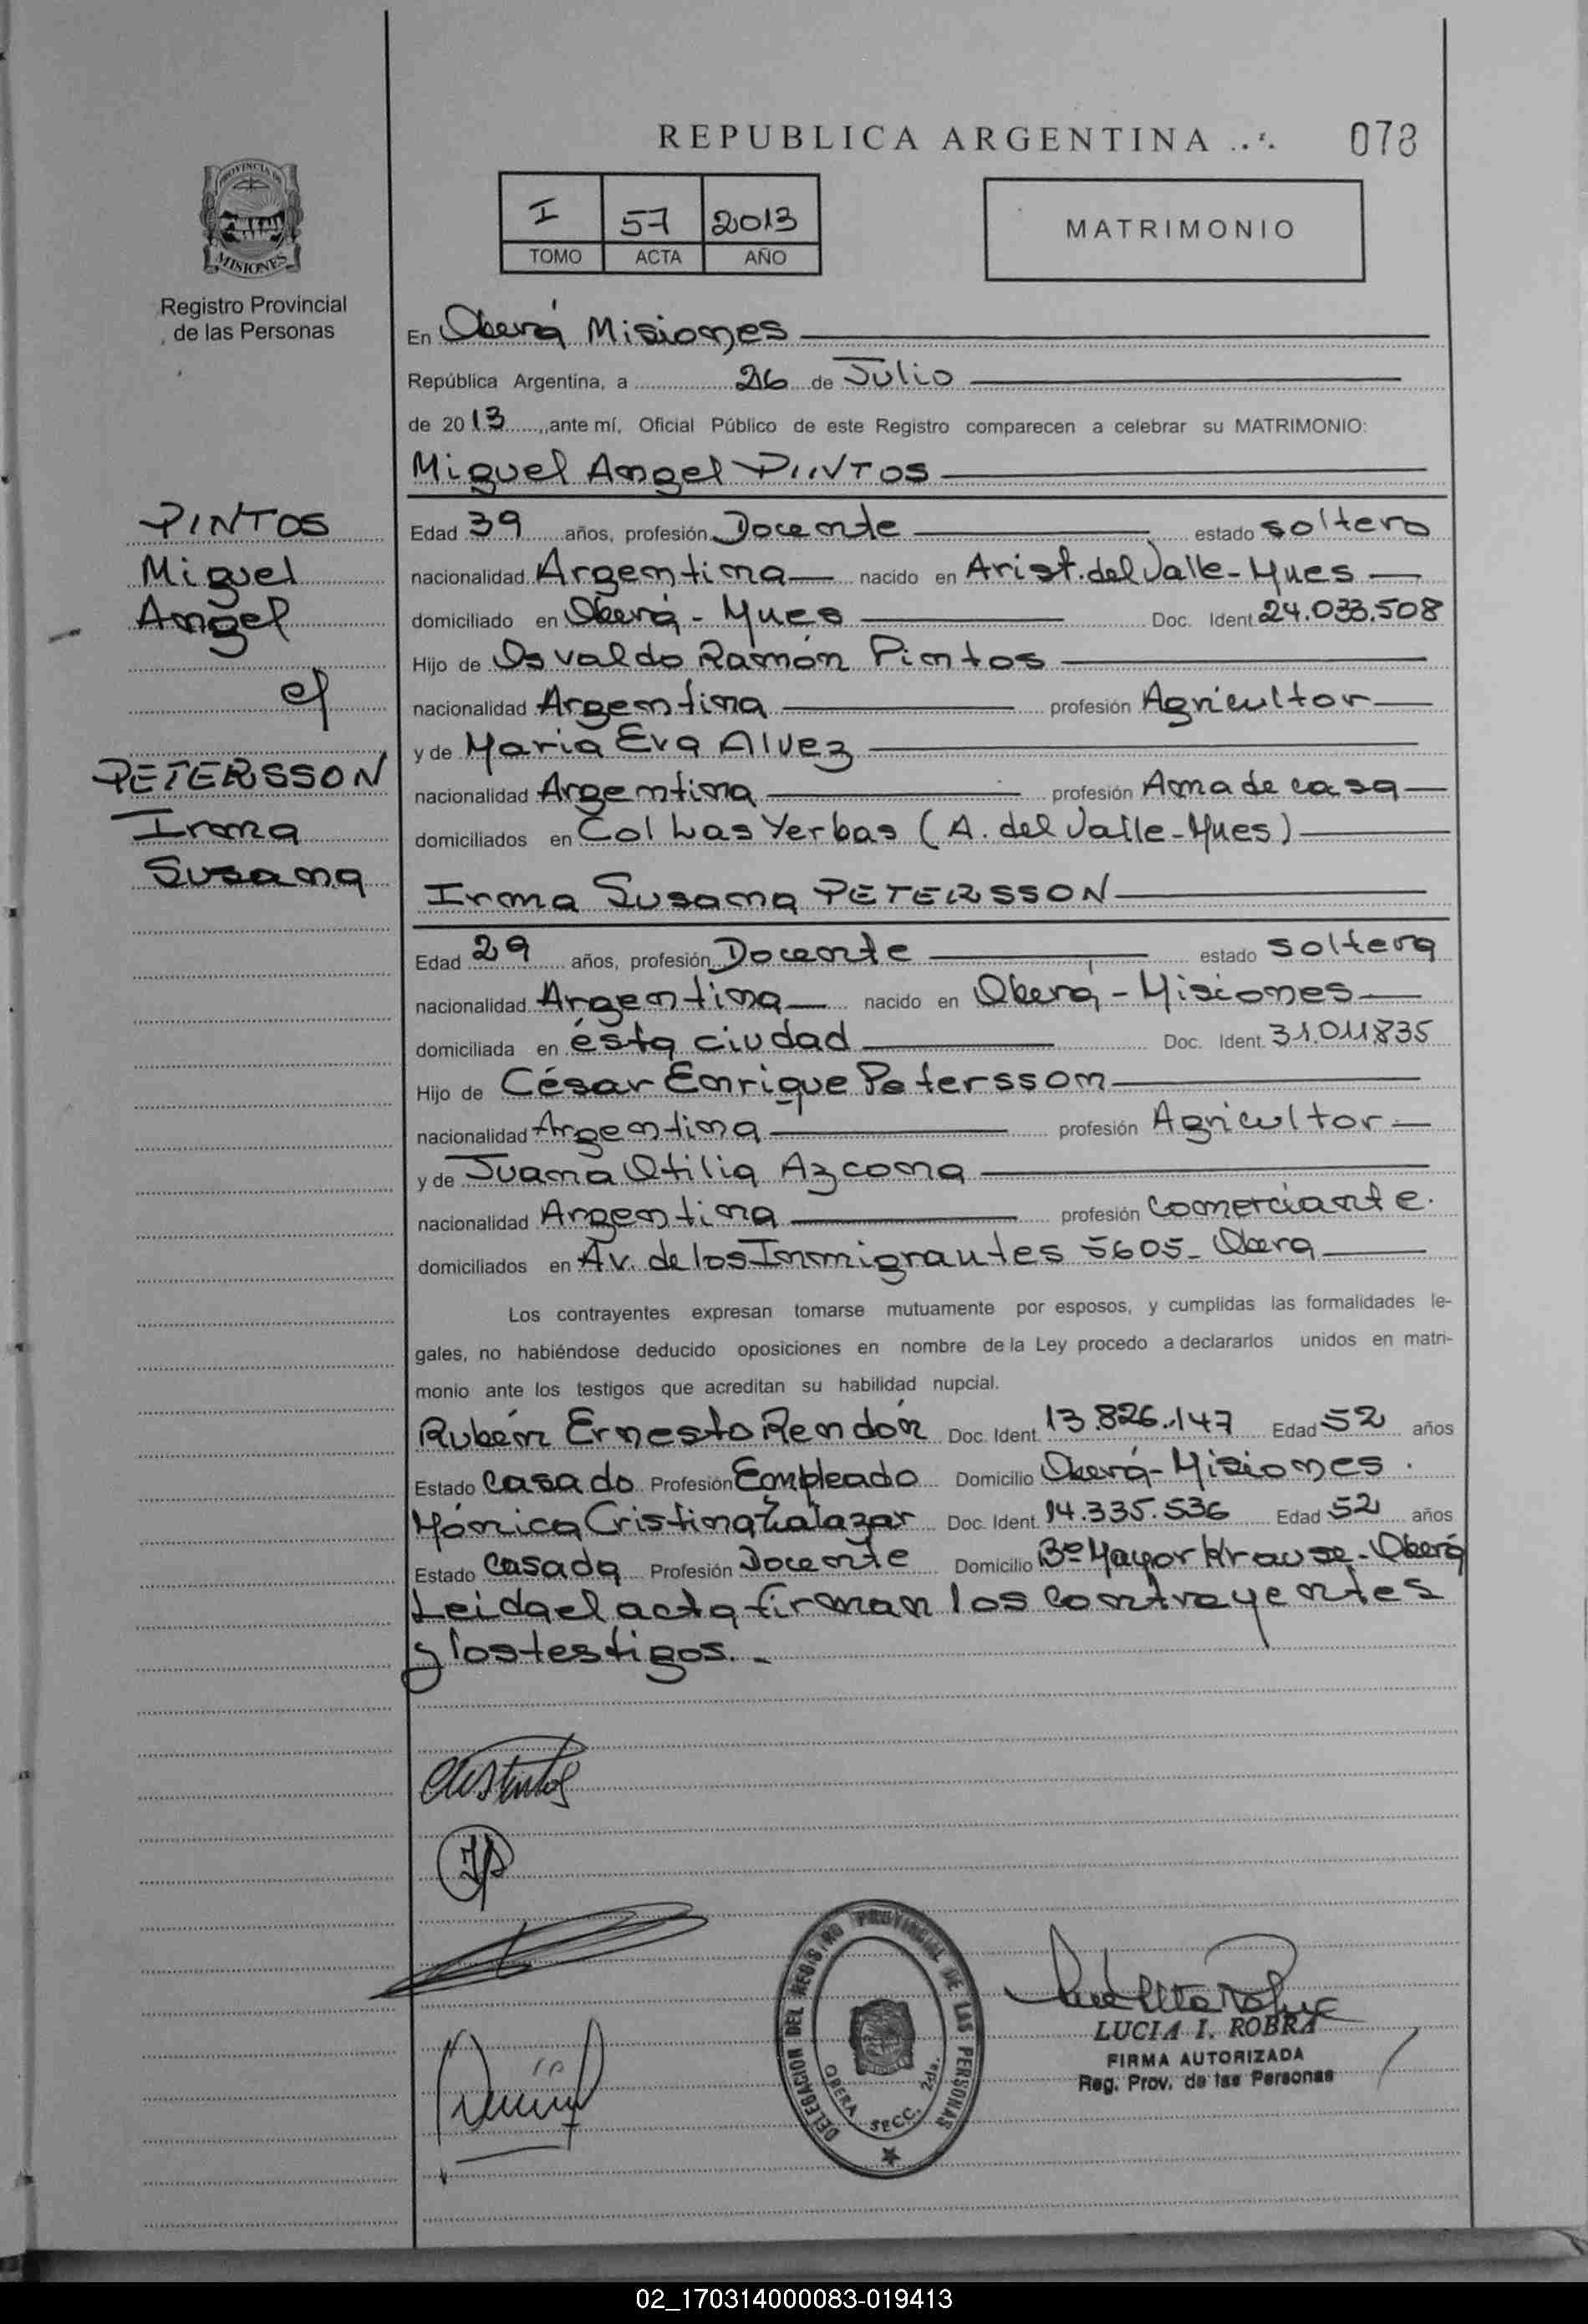 REPUBLICA ARGENTINA
078
PROVINCIA DE
MISIONES
Registro Provincial
de las Personas
I 57 2013
TOMO ACTA AÑO
MATRIMONIO
En Oberá Misiones
República Argentina, a 26 de Julio
de 2013, ante mí, Oficial Público de este Registro comparecen a celebrar su MATRIMONIO:
Miguel Angel PINTOS
PINTOS
Miguel
Angel
c/
PETERSSON
Irma
Susana
Edad 39 años, profesión Docente estado soltero
nacionalidad Argentina nacido en Arist. del Valle - Mnes
domiciliado en Oberá - Mnes Doc. Ident. 24.033.508
Hijo de Osvaldo Ramón Pintos
nacionalidad Argentina profesión Agricultor
y de Maria Eva Alvez
nacionalidad Argentina profesión Ama de casa
domiciliados en Col Las Yerbas (A. del Valle - Mnes)
Irma Susana PETERSSON
Edad 29 años, profesión Docente estado soltera
nacionalidad Argentina nacido en Oberá - Misiones
domiciliada en ésta ciudad Doc. Ident. 31.011.835
Hijo de César Enrique Petersson
nacionalidad Argentina profesión Agricultor
y de Juana Otilia Azcona
nacionalidad Argentina profesión Comerciante.
domiciliados en Av. de los Inmigrantes 5605 - Obera
Los contrayentes expresan tomarse mutuamente por esposos, y cumplidas las formalidades le-
gales, no habiéndose deducido oposiciones en nombre de la Ley procedo a declararlos unidos en matri-
monio ante los testigos que acreditan su habilidad nupcial.
Rubén Ernesto Rendón Doc. Ident. 13.826.147 Edad 52 años
Estado Casado Profesión Empleado Domicilio Oberá - Misiones.
Mónica Cristina Zalazar Doc. Ident. 14.335.536 Edad 52 años
Estado Casada Profesión Docente Domicilio Bº Mayor Krause - Oberá
Leida el acta firman los contrayentes
y los testigos. -
DELEGACION DEL REGISTRO PROVINCIAL DE LAS PERSONAS
OBERA SECC. 2da.
LUCIA I. ROBRA
FIRMA AUTORIZADA
Reg. Prov. de las Personas
02_170314000083-019413